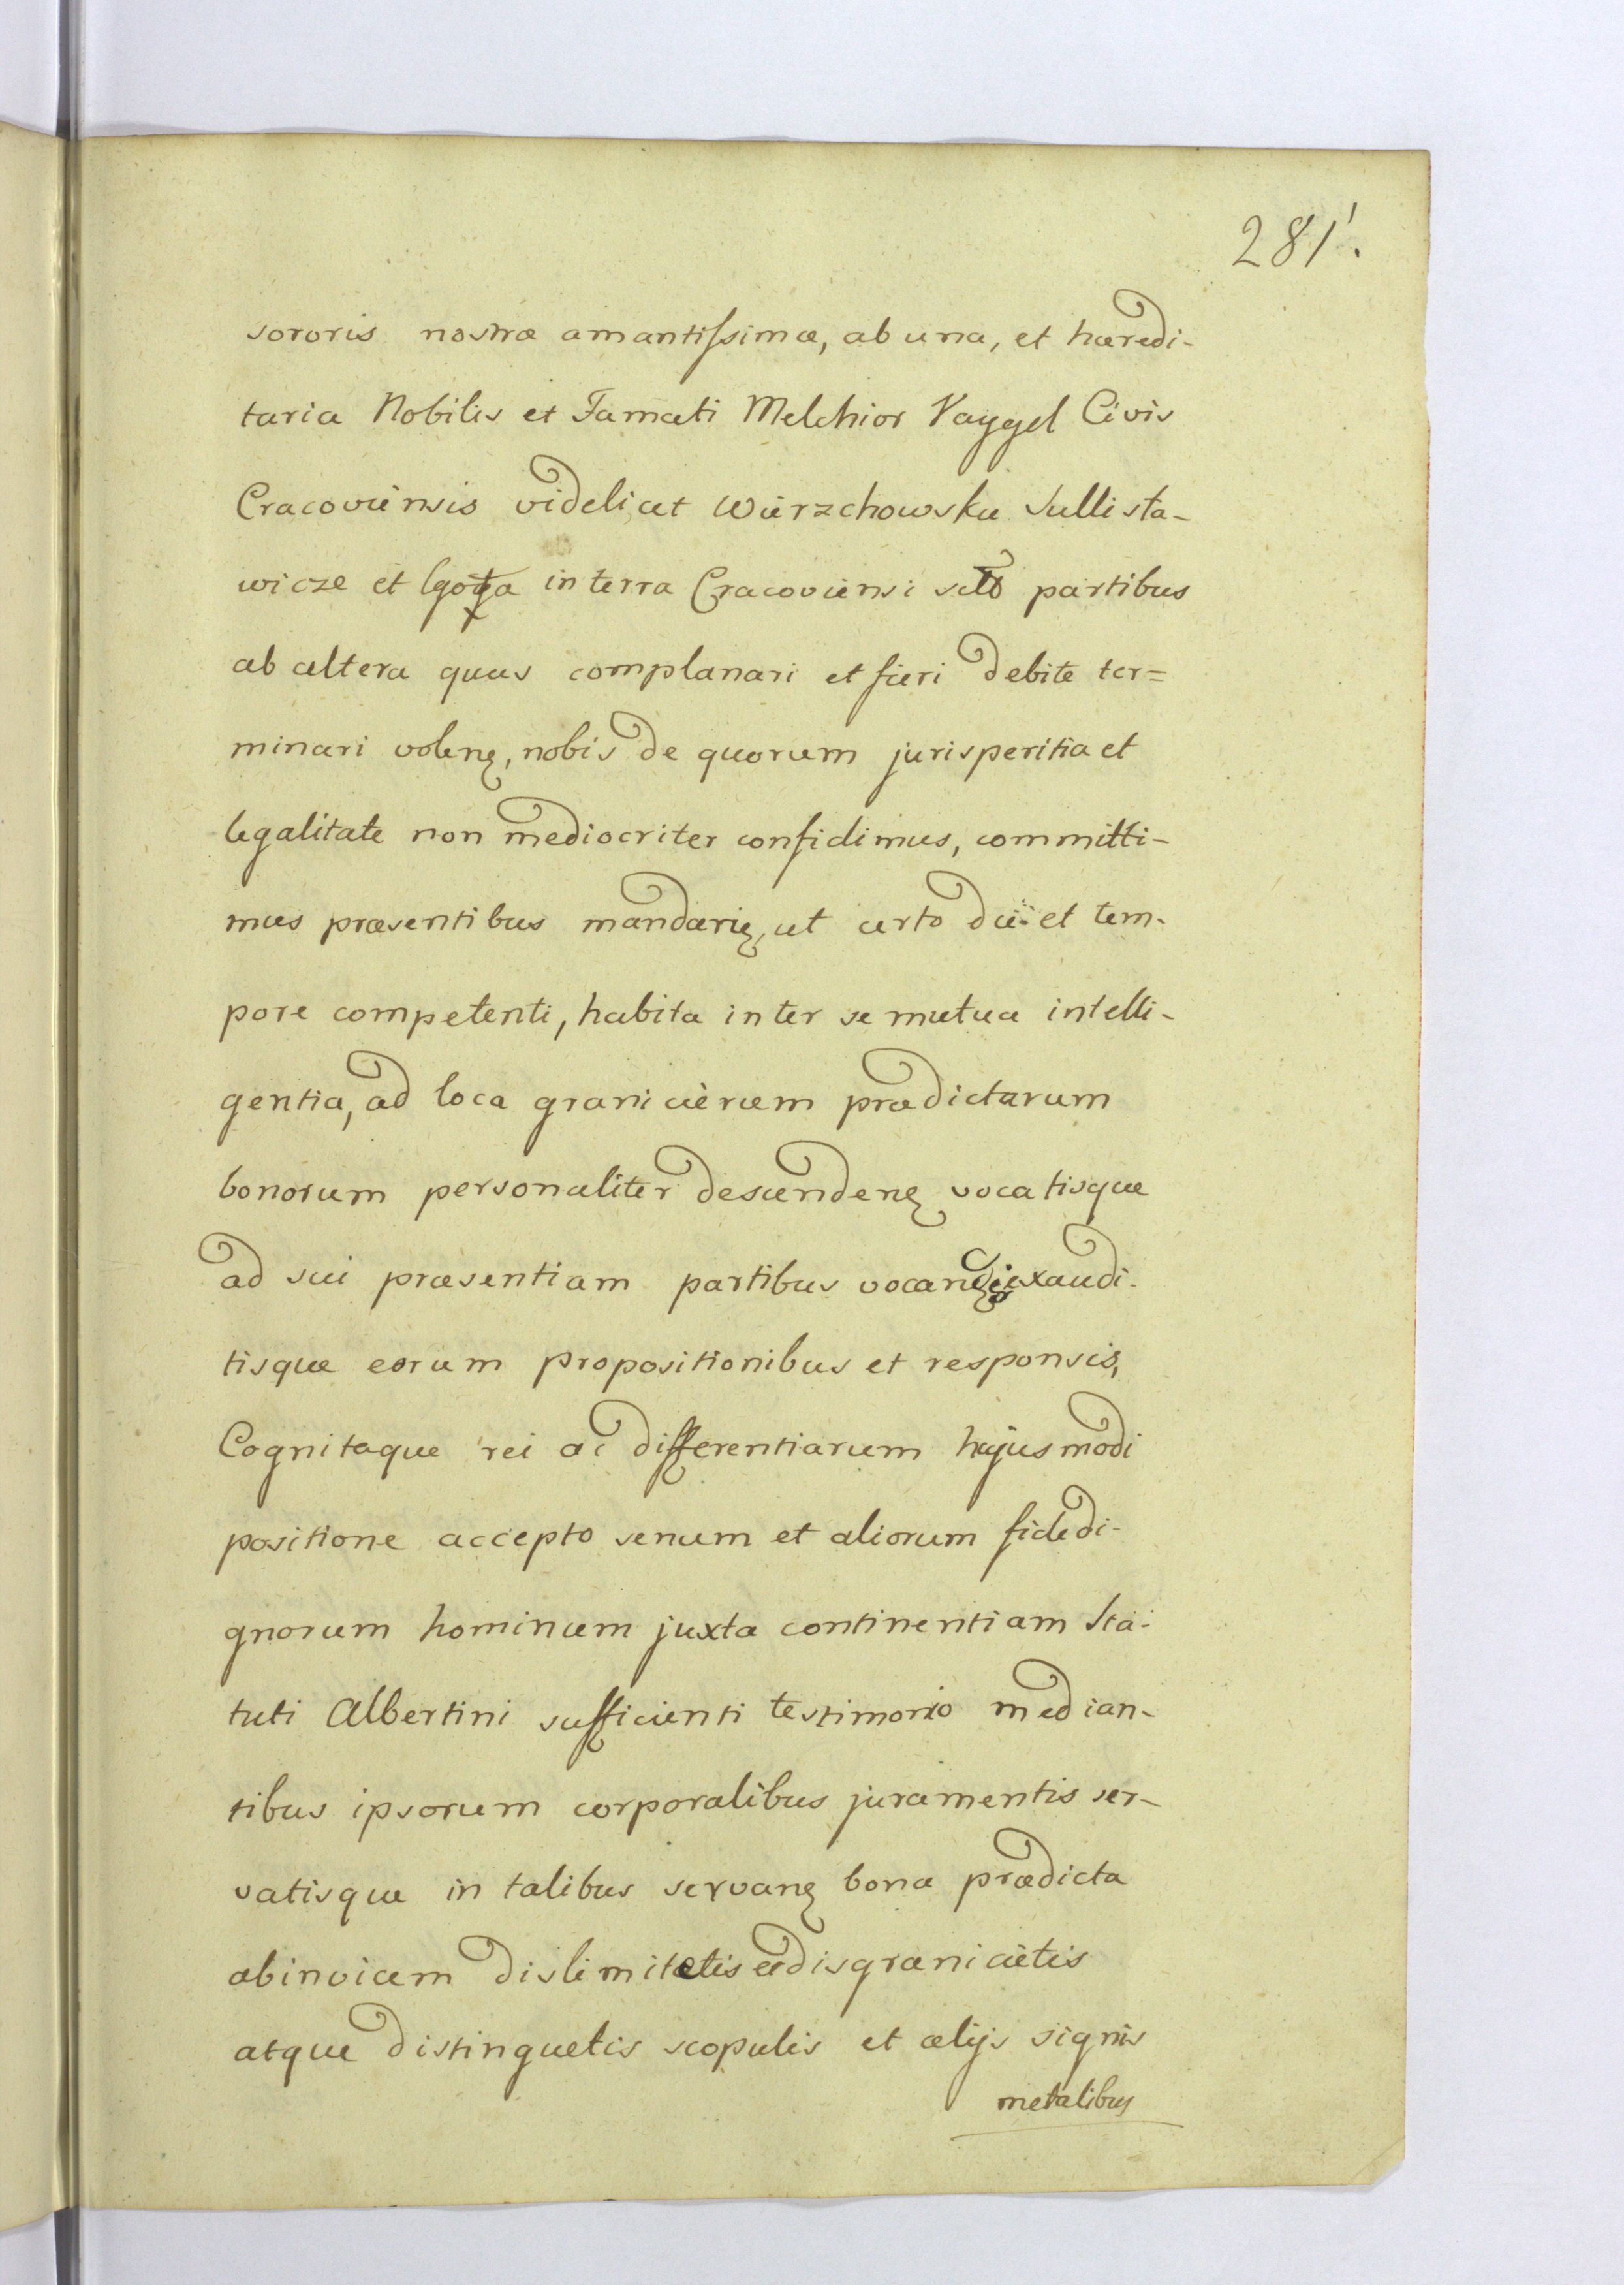 281'.
sororis nostræ amantissimæ, ab una, et hæredi-
taria Nobilis et Famati Melchior Vaygel Civis
Cracoviensis videlicet Wierzchowskie Sullista-
wicze et Lgota in terra Cracoviensi partibus
ab altera quas complanari et fieri debite ter=
minari volenę, nobis de quorum jurisperitia et
legalitate non mediocriter confidimus, committi-
mus præsentibus mandarię, ut certo die et tem-
pore competenti, habita inter se mutua intelli-
gentia, ad loca granicierum prædictarum
bonorum personaliter descendenę vocatisque
ad sui præsentiam partibus exaudi-
tisque eorum propositionibus et responsis,
Cognitaque rei ac differentiarum hujusmodi
positione accepto senum et aliorum fidedi-
gnorum hominum juxta continentiam Sta-
tuti Albertini sufficienti testimonio median-
tibus ipsorum corporalibus juramentis ser-
vatisque in talibus servanę bona prædicta
abinvicem dislimitetis et disgranicietis
atque distinguetis scopulis et alijs signis
metalibus